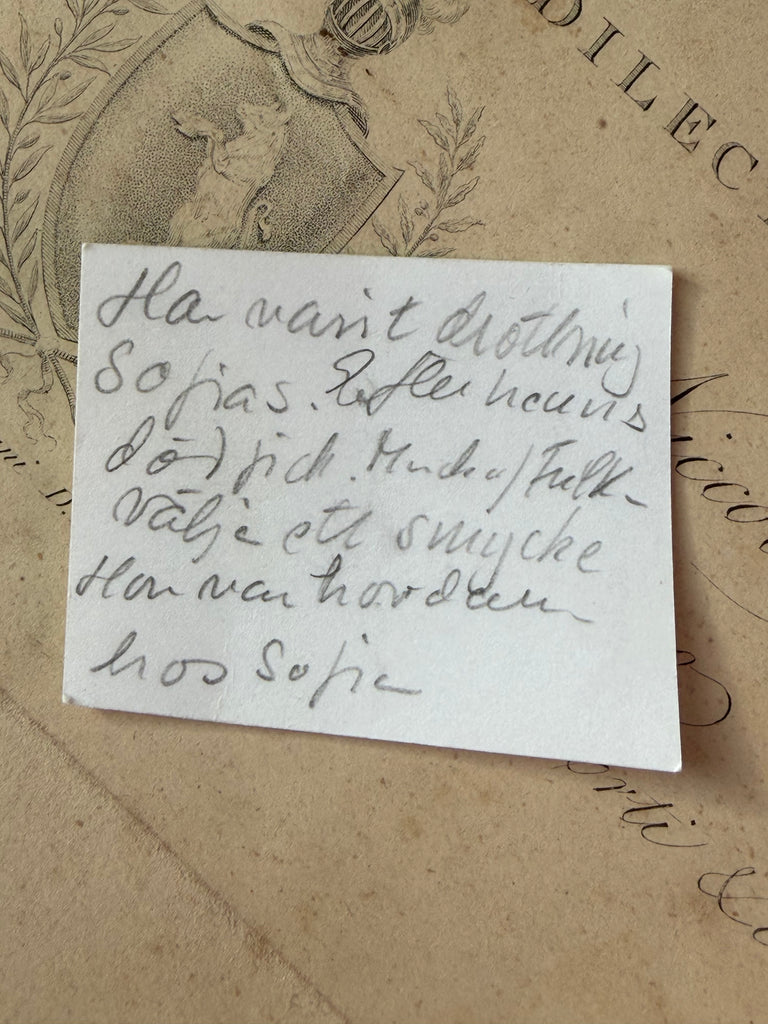 DILEC
Har varit drottning
Sofias. Efter hennes
död fick
välja ett smycke
Hon var hovdam
hos Sofia